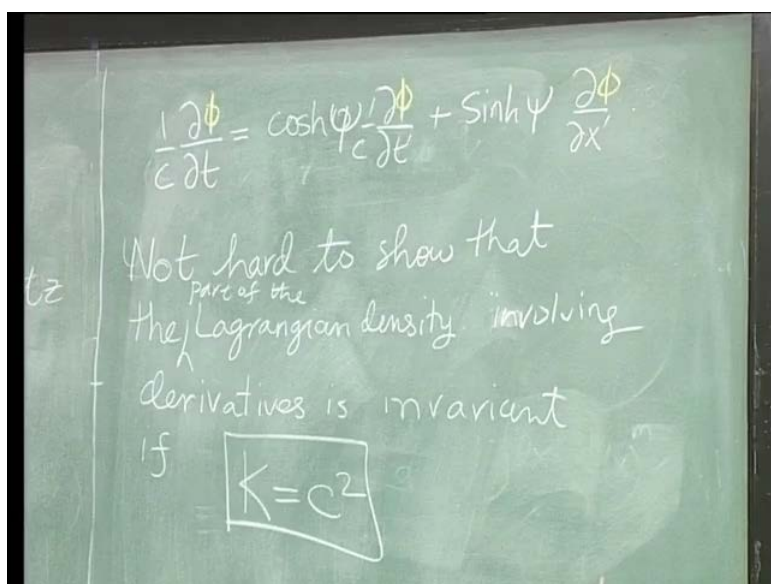 1/c ∂ϕ/∂t = coshψ 1/c ∂ϕ/∂t' + Sinhψ ∂ϕ/∂x'
Not hard to show that
tz
part of the
the Lagrangian density involving
derivatives is invariant
if
K=c²